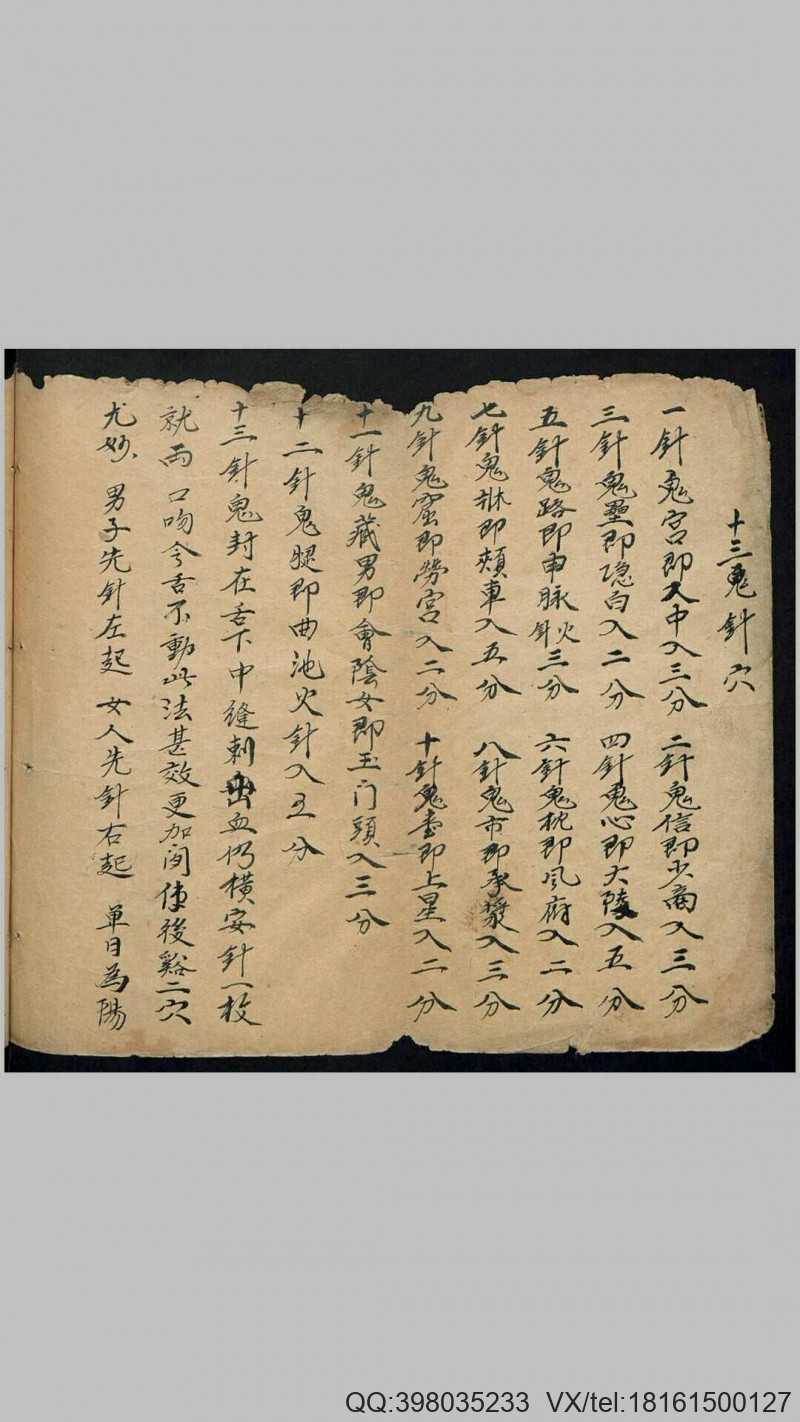 十三鬼針穴
一針鬼宮即人中入三分 二針鬼信即少商入三分
三針鬼壘即隐白入二分 四針鬼心即大陵入五分
五針鬼路即申脉火針三分 六針鬼枕即風府入二分
七針鬼牀即頰車入五分 八針鬼市即承漿入三分
九針鬼窟即勞宮入二分 十針鬼堂即上星入二分
十一針鬼藏男即會陰女即玉门頭入三分
十二針鬼腿即曲池火針入五分
十三針鬼封在舌下中縫刺出血仍橫安針一枚
就兩口吻令舌不動此法甚效更加间使後谿二穴
尤妙 男子先針左起 女人先針右起 单日為陽
QQ:398035233 VX/tel:18161500127